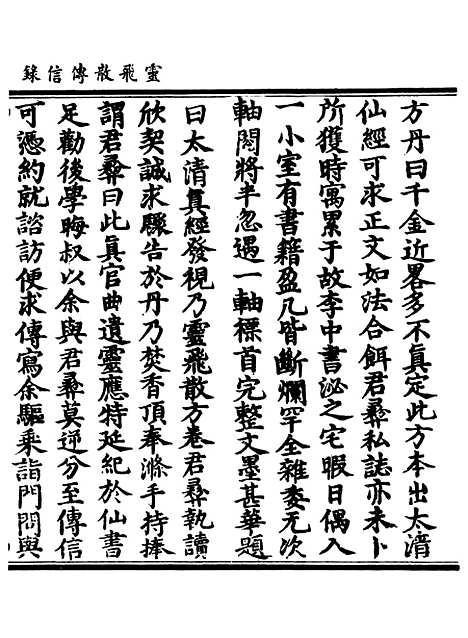 靈飛散傳信錄
方丹曰千金近畧多不真定此方本出太清
仙經可求正文如法合餌君彞私誌亦未卜
所獲時寓累于故李中書泌之宅暇日偶入
一小室有書籍盈几皆斷爛罕全雜委无次
軸閱將半忽遇一軸褾首完整文墨甚華題
曰太清真經發視乃靈飛散方卷君彞執讀
欣契誠求驟告於丹乃焚香頂奉滌手持捧
謂君彞曰此真官曲遺靈應特延紀於仙書
足勸後學晦叔以余與君彞莫逆分至傳信
可憑約就諮訪便求傳寫余驅乘詣門問與